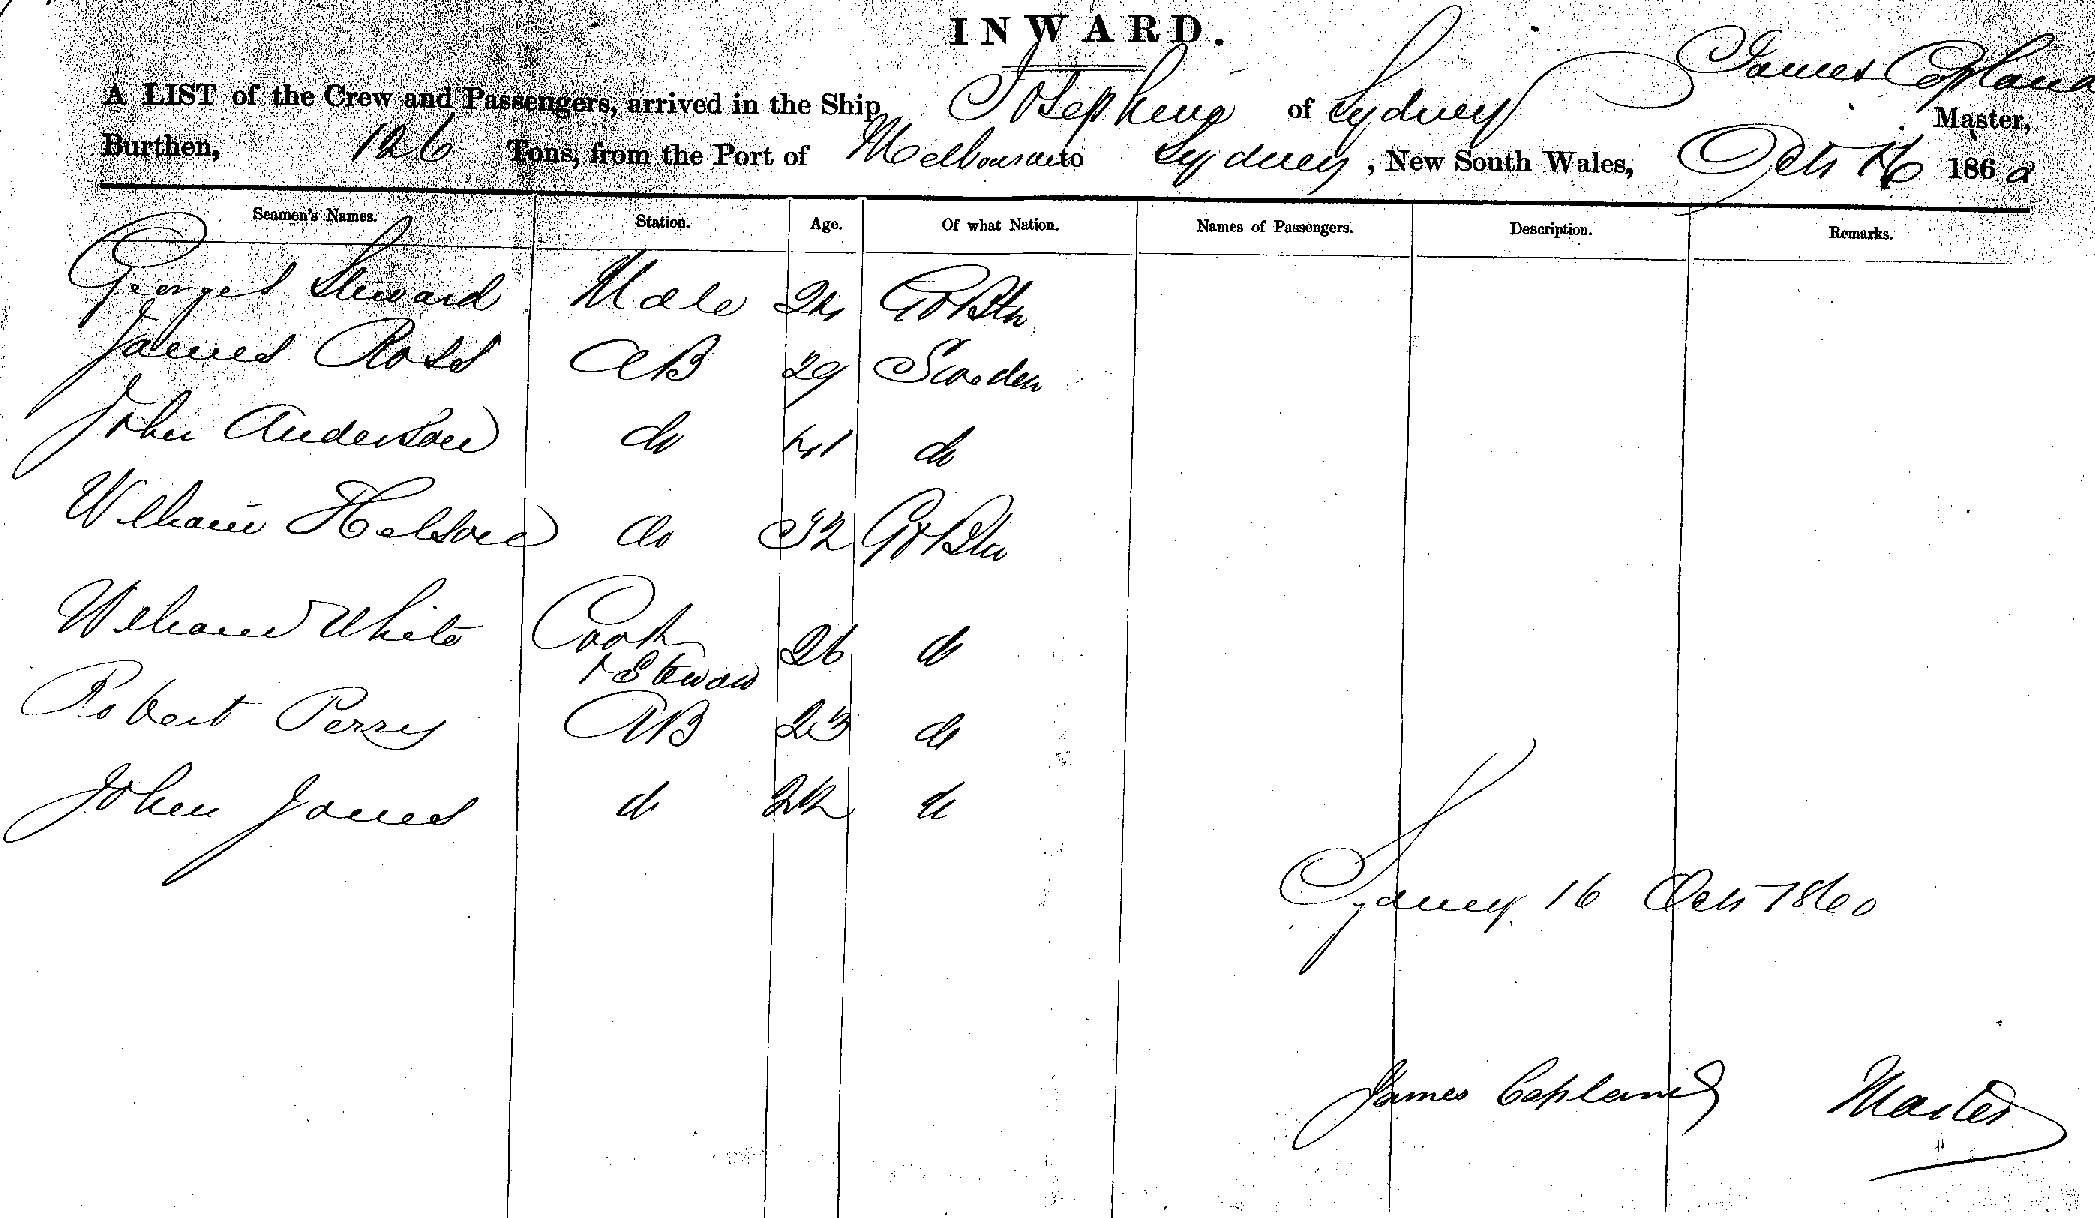 INWARD.
A LIST of the Crew and Passengers, arrived in the Ship Josephine of Sydney James Copland Master,
Burthen, 126 Tons, from the Port of Melbourne to Sydney, New South Wales, Oct 16 1860
Seamen's Names. Station. Age. Of what Nation. Names of Passengers. Description. Remarks.
George Steward Mate 24 Gt Btn
James Ross AB 29 Sweden
John Anderson do 41 do
William do 32 Gt Btn
William White Cook & Steward 26 do
Robert Perry AB 23 do
John Jones do 22 do
Sydney 16 Oct 1860
James Copland Master